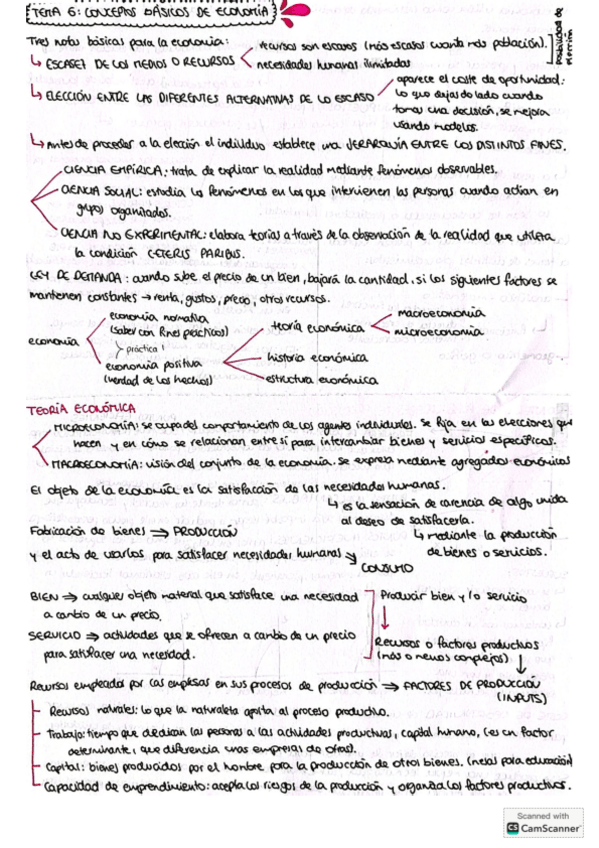 TEMA 6: CONCEPTOS BÁSICOS DE ECONOMÍA
Tres notas básicas para la economía:
recursos son escasos (más escasos cuanta más población).
necesidades humanas ilimitadas
posibilidad de elección
↳ ESCASEZ DE LOS MEDIOS O RECURSOS
↳ ELECCIÓN ENTRE LAS DIFERENTES ALTERNATIVAS DE LO ESCASO
aparece el coste de oportunidad:
lo que dejas de lado cuando
tomas una decisión, se mejora
usando modelos.
↳ Antes de proceder a la elección el individuo establece una JERARQUÍA ENTRE LOS DISTINTOS FINES.
CIENCIA EMPÍRICA: trata de explicar la realidad mediante fenómenos observables.
CIENCIA SOCIAL: estudia los fenómenos en los que intervienen las personas cuando actúan en
grupos organizados.
CIENCIA NO EXPERIMENTAL: elabora teorías a través de la observación de la realidad que utiliza
la condición CETERIS PARIBUS.
LEY DE DEMANDA: cuando sube el precio de un bien, bajará la cantidad. si los siguientes factores se
mantienen constantes → renta, gustos, precio, otros recursos.
economía
economía normativa
(saber con fines prácticos)
práctica
economía positiva
(verdad de los hechos)
teoría económica
historia económica
estructura económica
macroeconomía
microeconomía
TEORÍA ECONÓMICA
MICROECONOMÍA: se ocupa del comportamiento de los agentes individuales. Se fija en las elecciones que
hacen y en cómo se relacionan entre sí para intercambiar bienes y servicios específicos.
MACROECONOMÍA: visión del conjunto de la economía. Se expresa mediante agregados económicos
El objeto de la economía es la satisfacción de las necesidades humanas.
↳ es la sensación de carencia de algo unida
al deseo de satisfacerla.
↳ mediante la producción
de bienes o servicios.
Fabricación de bienes ⇒ PRODUCCIÓN
y el acto de usarlos para satisfacer necesidades humanas
CONSUMO
BIEN ⇒ cualquier objeto material que satisface una necesidad
a cambio de un precio.
SERVICIO ⇒ actividades que se ofrecen a cambio de un precio
para satisfacer una necesidad.
Producir bien y/o servicio
Recursos o factores productivos
(más o menos complejos)
Recursos empleados por las empresas en sus procesos de producción ⇒ FACTORES DE PRODUCCIÓN
(INPUTS)
Recursos naturales: lo que la naturaleza aporta al proceso productivo.
Trabajo: tiempo que dedican las personas a las actividades productivas, capital humano, (es un factor
determinante, que diferencia unas empresas de otras).
Capital: bienes producidos por el hombre para la producción de otros bienes. (mesas para educación)
Capacidad de emprendimiento: acepta los riesgos de la producción y organiza los factores productivos.
Scanned with
CS CamScanner